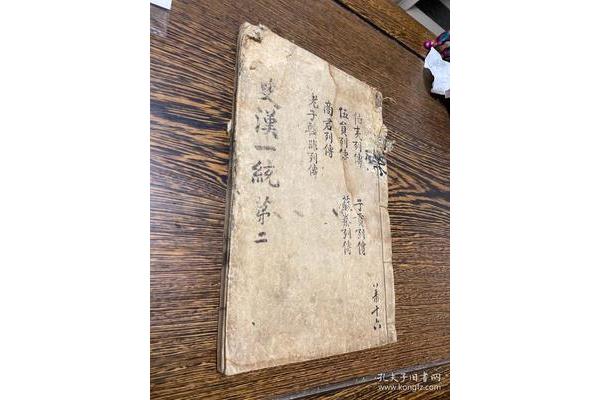 共十六
伯夷列傳 子貢列傳
伍員列傳 蘇秦列傳
商君列傳
老子韓非列傳
史漢一統 第二
孔夫子旧书网
www.kongfz.com